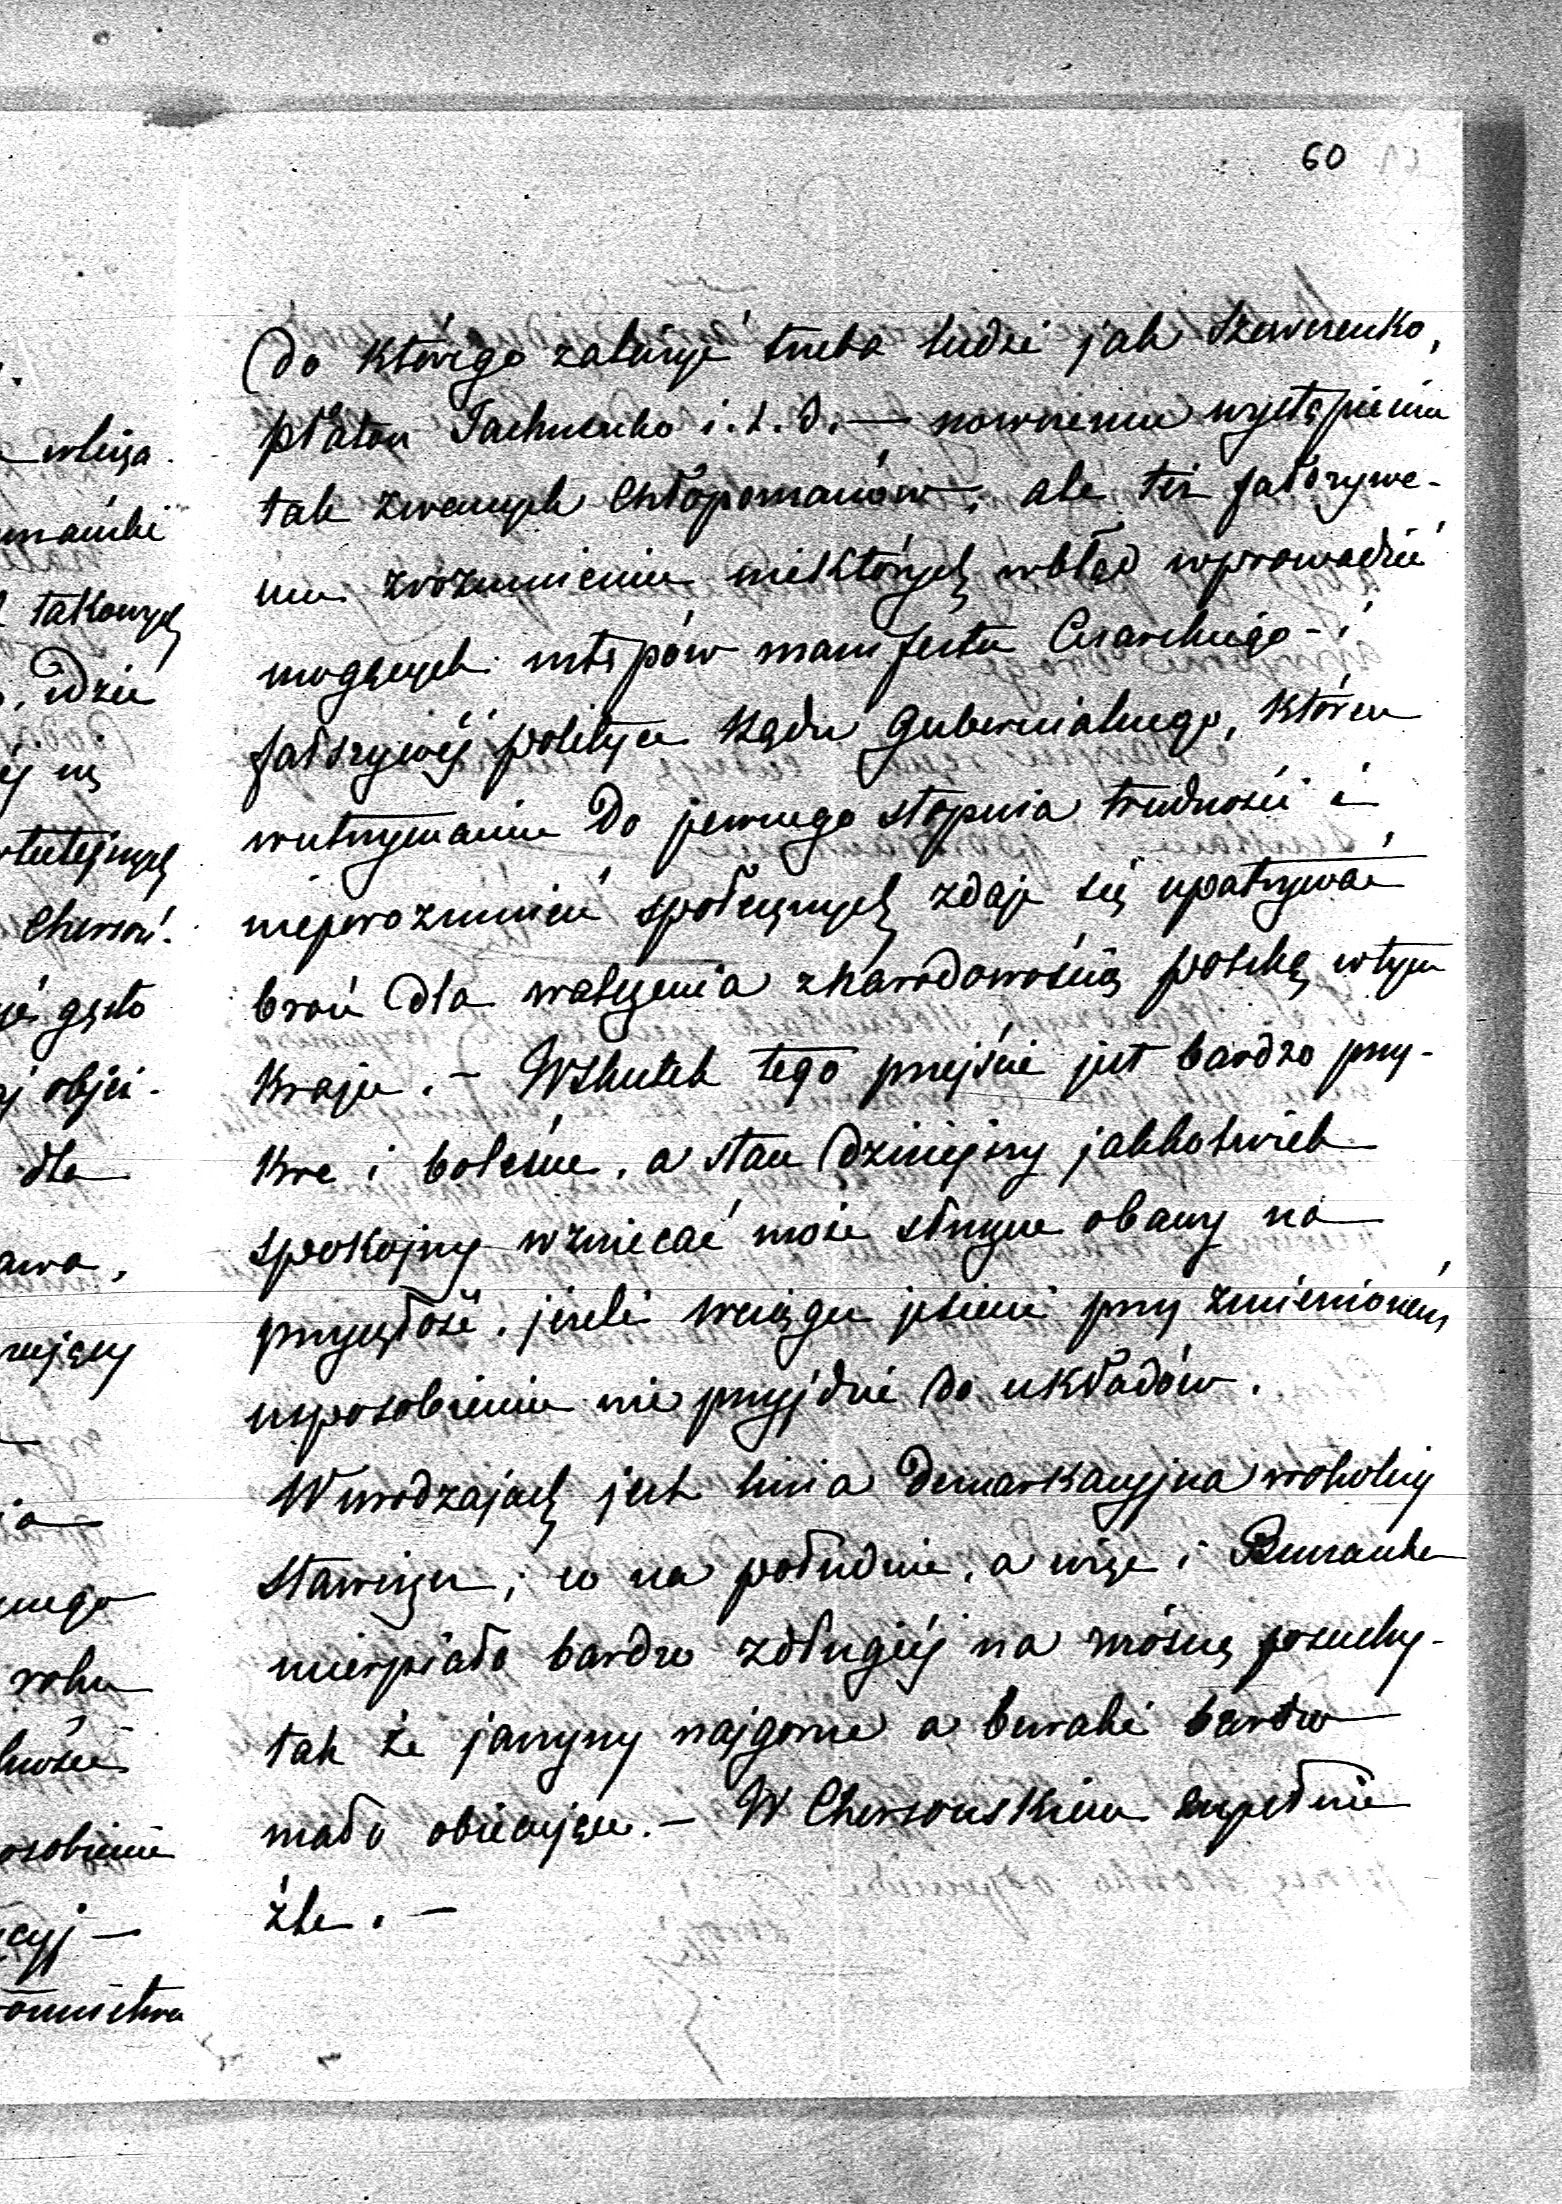 60
do którego zaliczyć trzeba ludzi jak Szewczenko,
Płaton Tachnenko i. t. d. — nowniemu wystąpieniu
tak zwanych Chłopomanów, ale też fałszywe-
mu zrozumieniu niektórych wbłąd wprowadzić
mogących ustępów manifestu Cesarskiego - i
fałszywéj polityce Rządu Gubernialnego, któren
wutrzymaniu do pewnego stopnia trudności i
nieporozumień społecznych zdaje się upatrywać
broń dla walczenia znarodowością polską wtym
Kraju. — Wskutek tego przejście jest bardzo przy-
kre i boleśne, a stan dzisiejszy jakkolwiek
spokojny wzniecać może słuszne obawy na
przyszłość, jeżeli wciągu jesieni przy zmienioném
usposobieniu nie przyjdzie do układów.
W urodzajach jest linia demarkacyjna wokolicy
Stawiszcz; co na południe, a więc i Buzanka
ucierpiało bardzo zdługiéj na wiósnę posuchy -
tak że jarzyny najgorsze a buraki bardzo
mało obiecujące. — W Chersońskiem zupełnie
źle. —
wlicza
umański
takowych
, idzie
ej są
wtutejszych
Cherson.
gęsto
obję-
dla
awa,
rujący
nego
roku
osobienie
cyj —